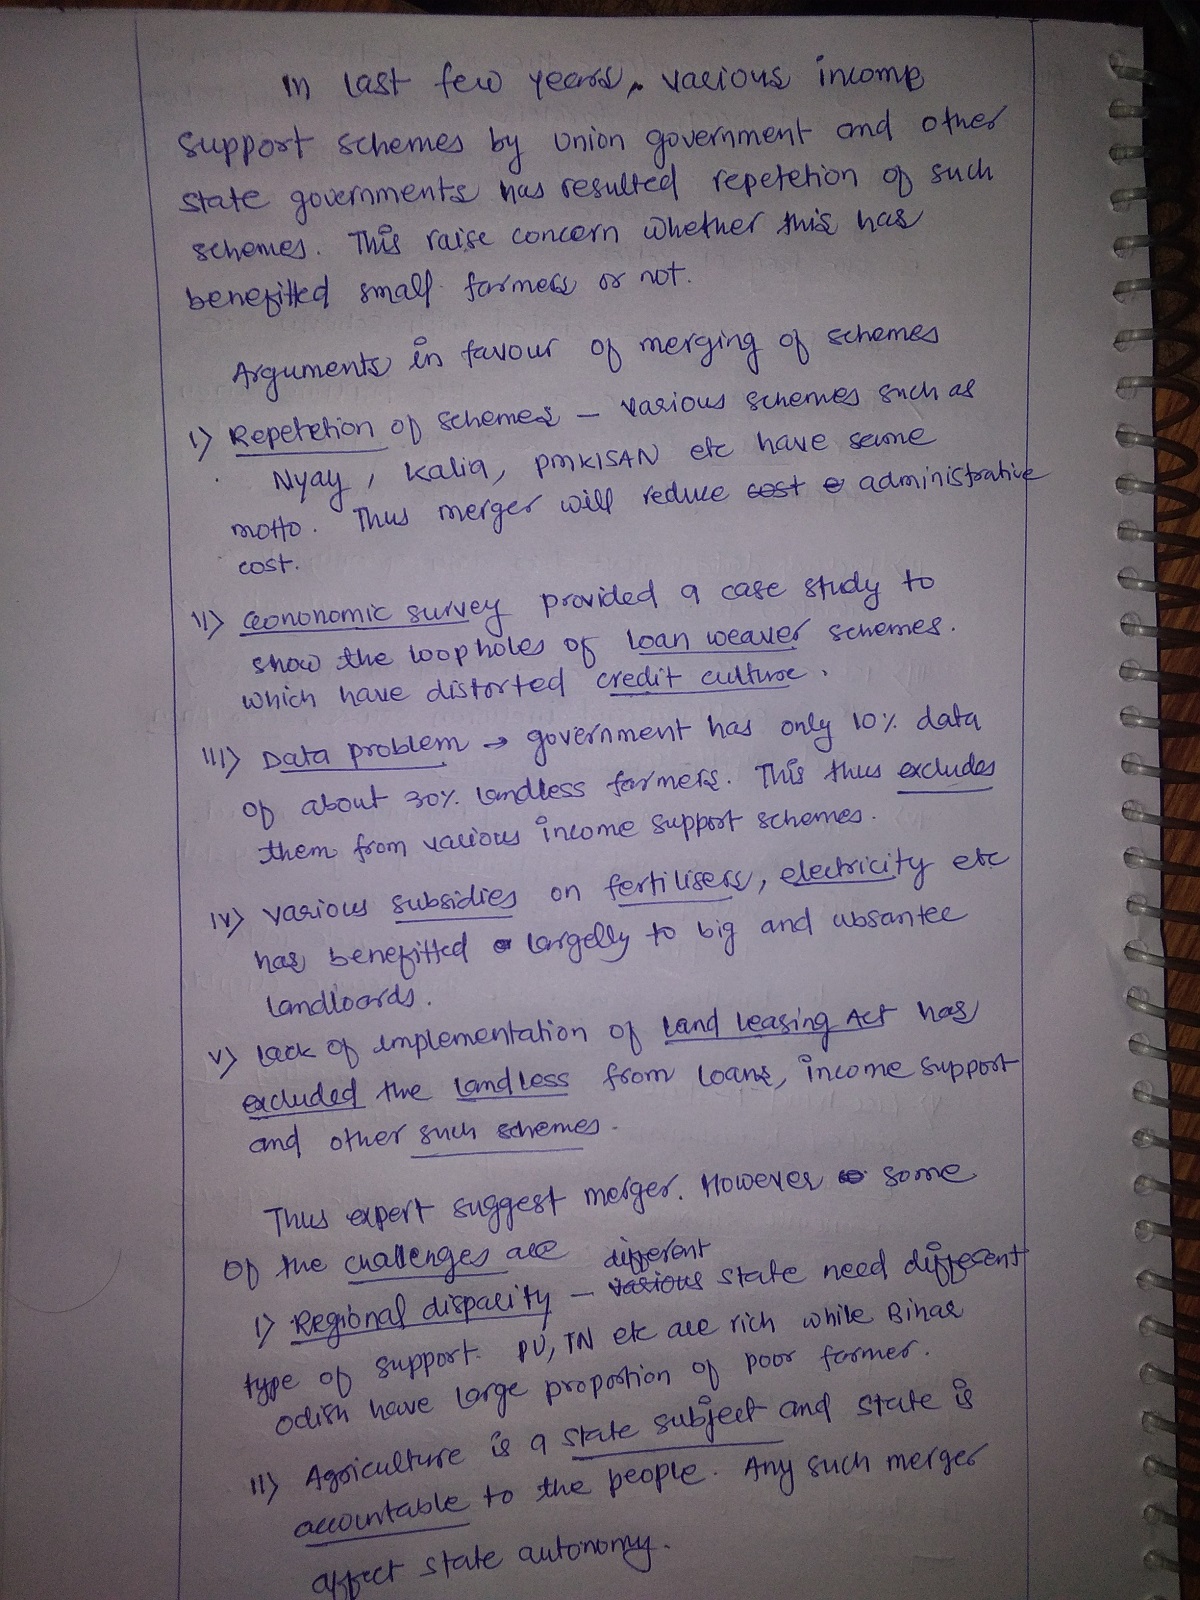 In last few years, various income
support schemes by union government and other
state governments has resulted repetetion of such
schemes. This raise concern whether this has
benefitted small farmers or not.
Arguments in favour of merging of schemes
I) Repetetion of schemes - various schemes such as
Nyay, Kalia, PMKISAN etc have same
motto. Thus merger will reduce cost administrative
cost.
II) Econonomic survey provided a case study to
show the loopholes of loan weaver schemes.
which have distorted credit culture.
III) Data problem → government has only 10% data
of about 30% landless farmers. This thus excludes
them from various income support schemes.
IV) various subsidies on fertilisers, electricity etc
has benefitted largelly to big and absantee
landloards.
V) lack of implementation of land leasing Act has
excluded the landless from loans, income support
and other such schemes.
Thus expert suggest merger. However some
of the challenges are
different
I) Regional disparity - various state need different
type of support. PU, TN etc are rich while Bihar
odish have large proportion of poor farmer.
II) Agriculture is a state subject and state is
accountable to the people. Any such merger
affect state autonomy.